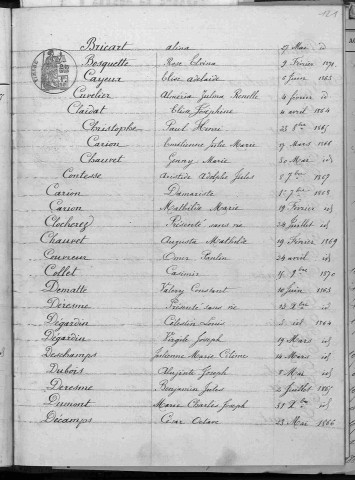 121
Bricart Alina 27 Mai d
Bosquette Rose Elvina 9 Février 1871
Cayeux Elise adelaïde 5 Juin 1863
Cuvelier Almeria Julma 4 février d
Claidat Elisa Joséphine 4 avril 1864
Christophe Paul Henri 23 8bre 1865
Carion Emilienne Julie Marie 19 Mars 1866
Chauvet Genny Marie 30 Mai id
Contesse Aristide Adolphe Jules 8 7bre 1867
Carion Damariste 1er 7bre 1868
Carion Mathilde Marie 19 Février id
Clocherez Présenté sans vie 24 Juillet id
Chauvet Augusta Mathilde 19 Février 1869
Couvreur Omer 24 avril id
Collet Casimir 15 9bre 1870
Dematte Valery Constant 10 Juin 1863
Deresme Présenté sans vie 23 Xbre id
Dégardin Célestin Louis 1864
Dégardin Virgile Joseph 19 Mars id
Deschamps Julienne Marie 14 Mars id
Dubois Joseph 8 Mai id
Deresme Benjamin Jules 2 Juillet 1865
Dumont Marie Charles Joseph 31 Xbre id
Décamps César Octave 23 Mai 1866